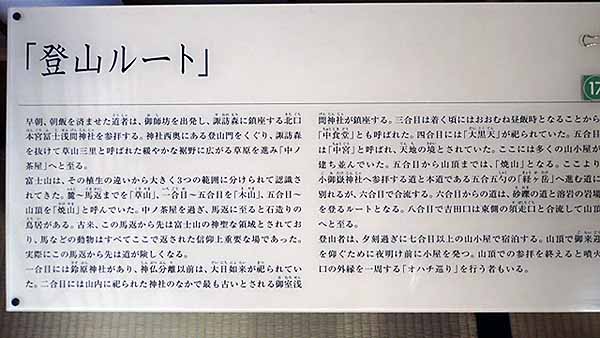 「登山ルート」
17
早朝、朝飯を済ませた道者は、御師坊を出発し、諏訪森に鎮座する北口
本宮冨士浅間神社を参拝する。神社西奥にある登山門をくぐり、諏訪森
を抜けて草山三里と呼ばれた緩やかな裾野に広がる草原を進み「中ノ
茶屋」へと至る。
富士山は、その植生の違いから大きく3つの範囲に分けられて認識
されてきた。麓〜馬返までを「草山」、一合目〜五合目を「木山」、五合目〜
山頂を「焼山」と呼んでいた。中ノ茶屋を過ぎ、馬返に至ると石造りの
鳥居がある。古来、この馬返から先は富士山の神聖な領域とされてお
り、馬などの動物はすべてここで返された信仰上重要な場であった。
実際にこの馬返から先は道が険しくなる。
一合目には鈴原神社があり、神仏分離以前は、大日如来が祀られてい
た。二合目には山内に祀られた神社のなかで最も古いとされる御室浅
間神社が鎮座する。三合目は着く頃にはおおむね昼飯時となることから
「中食堂」とも呼ばれた。四合目には「大黒天」が祀られていた。五合目
は「中宮」と呼ばれ、天地の境とされていた。ここには多くの山小屋が
建ち並んでいた。五合目から山頂までは、「焼山」となる。ここより
小御嶽神社へ参拝する道と本道である五合五勺の「経ヶ岳」へ進む道に
別れるが、六合目で合流する。六合目からの道は、砂礫の道と溶岩の岩場
を登るルートとなる。八合目で吉田口は東側の須走口と合流して山頂
へと至る。
登山者は、夕刻過ぎに七合目以上の山小屋で宿泊する。山頂で御来迎
を仰ぐために夜明け前に小屋を発つ。山頂での参拝を終えると噴火
口の外縁を一周する「オハチ巡り」を行う者もいる。